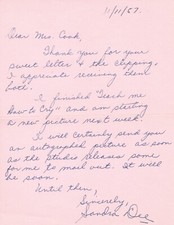 11/11/57
Dear Mrs. Cook,
Thank you for your
sweet letter & the clipping,
I appreciate receiving them
both.
I finished "Teach me
How to Cry" and am starting
a new picture next week.
I will certainly send you
an autographed picture as soon
as the studio releases some
for me to mail out. It will
be soon.
Until then,
Sincerely,
Sandra Dee